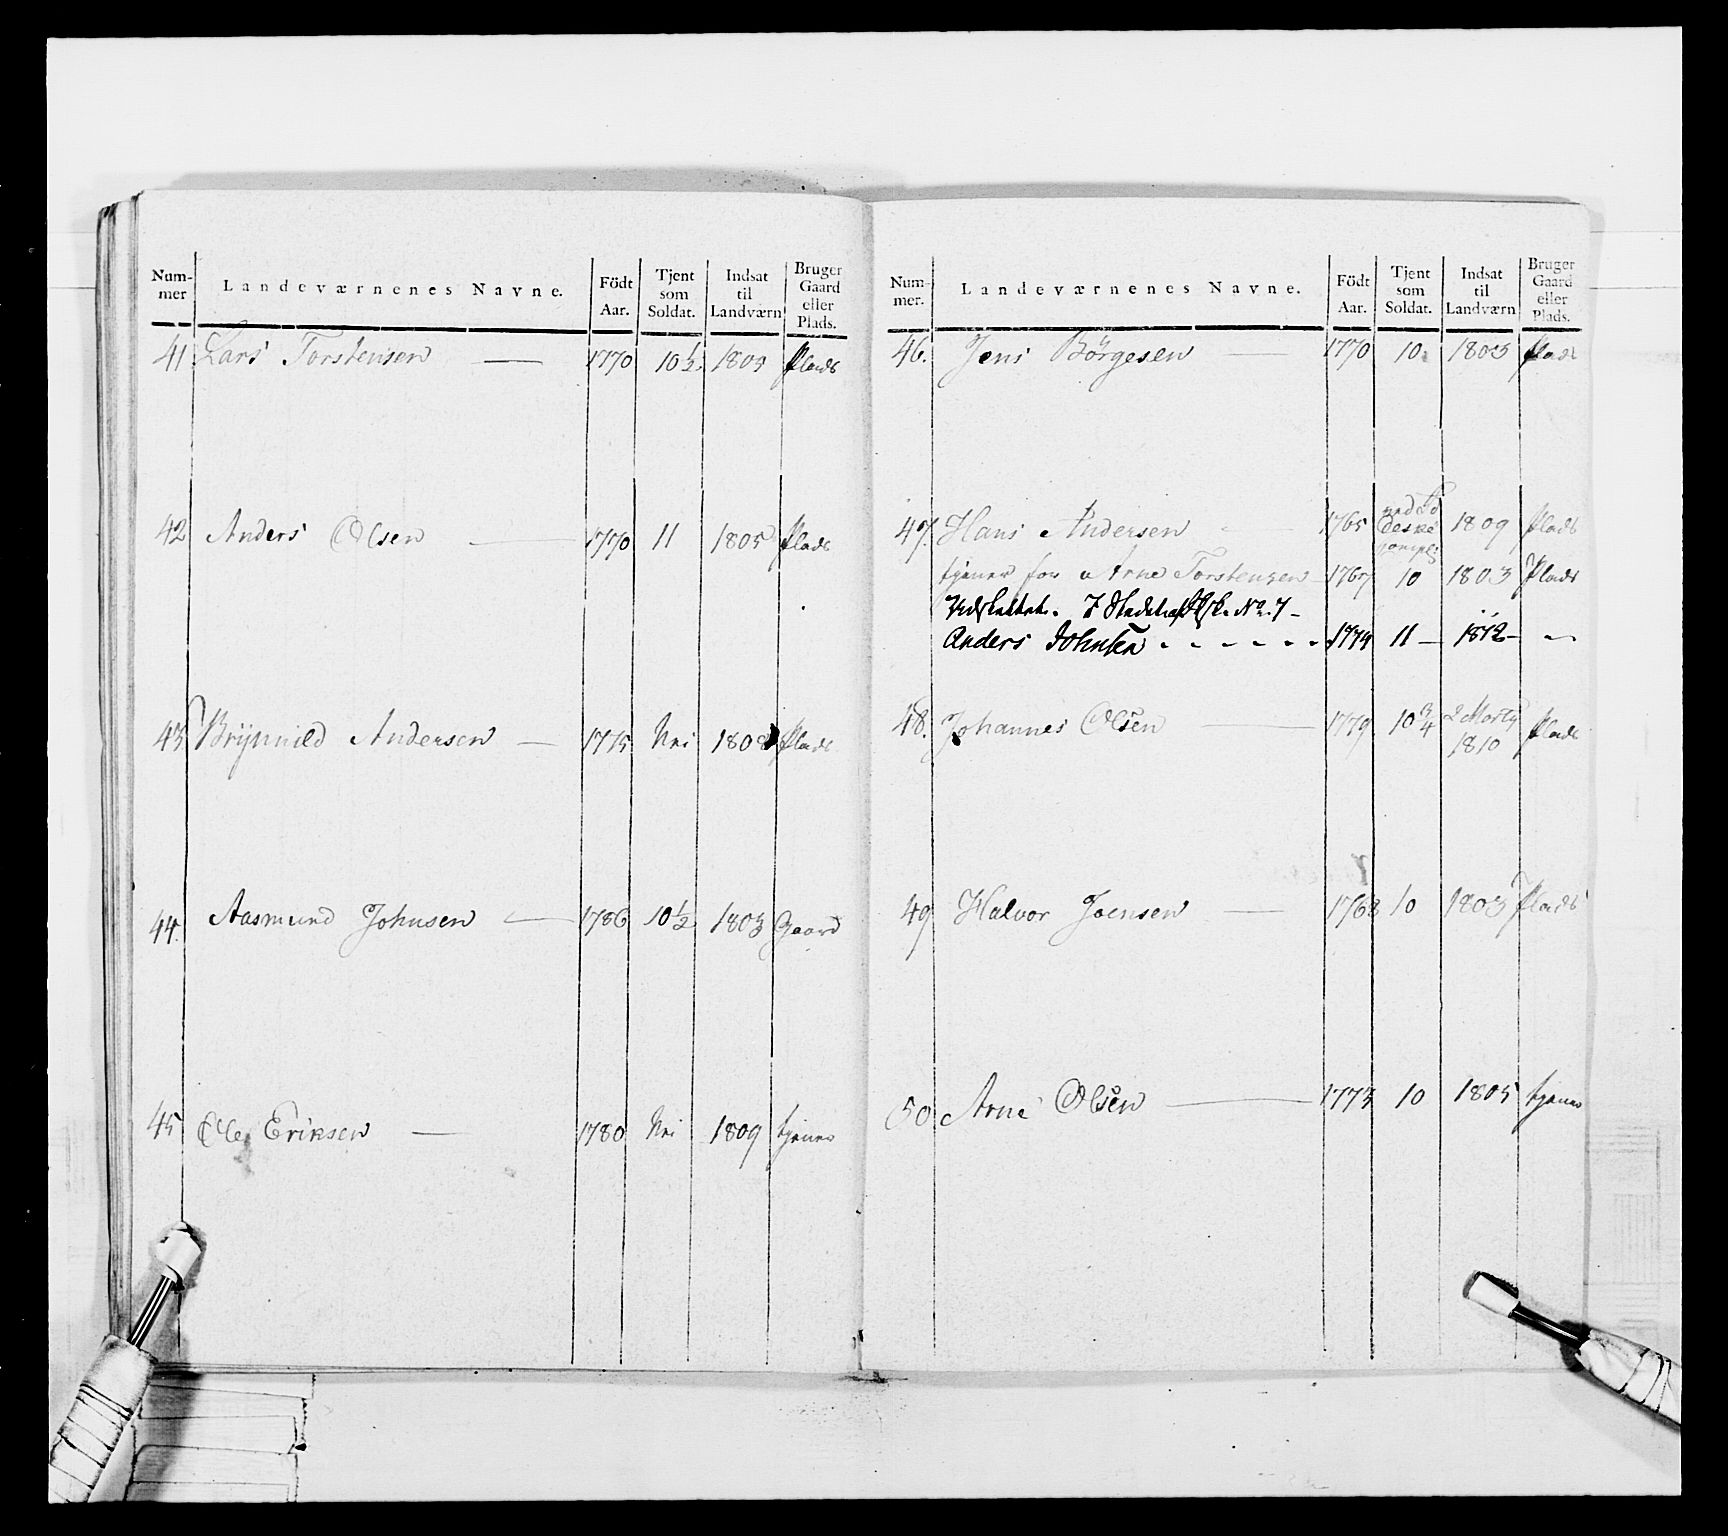 Num-mer Landeværnenes Navne. Födt Aar. Tjent som Soldat. Indsat til Landværn Bruger Gaard eller Plads.
41 Lars Torstensen 1770 10½ 1803 Plads
42 Anders Olsen 1770 11 1805 Plads
43 Brÿnnild Andersen 1775 Nei 1808 Plads
44. Aasmund Johnsen 1786 10½ 1803 Gaard
45 Ole Eriksen 1780 Nei 1809 tjener
Num-mer. Landeværnenes Navne. Födt Aar. Tjent som Soldat. Indsat til Landværn Bruger Gaard eller Plads.
46. Jens Börgesen 1770 10. 1803 Plads
47. Hans Andersen 1765 1809 Plads
tjener for Arne Torstensen 1767 10 1803 Plads
No. 7
Anders Johnsen 1774 11 1812
48. Johannes Olsen 1779 10¾ 1810 Plads
49 Halvor Joensen 1768 10 1803 Plads
50 Arne Olsen 1773 10 1805 tjener